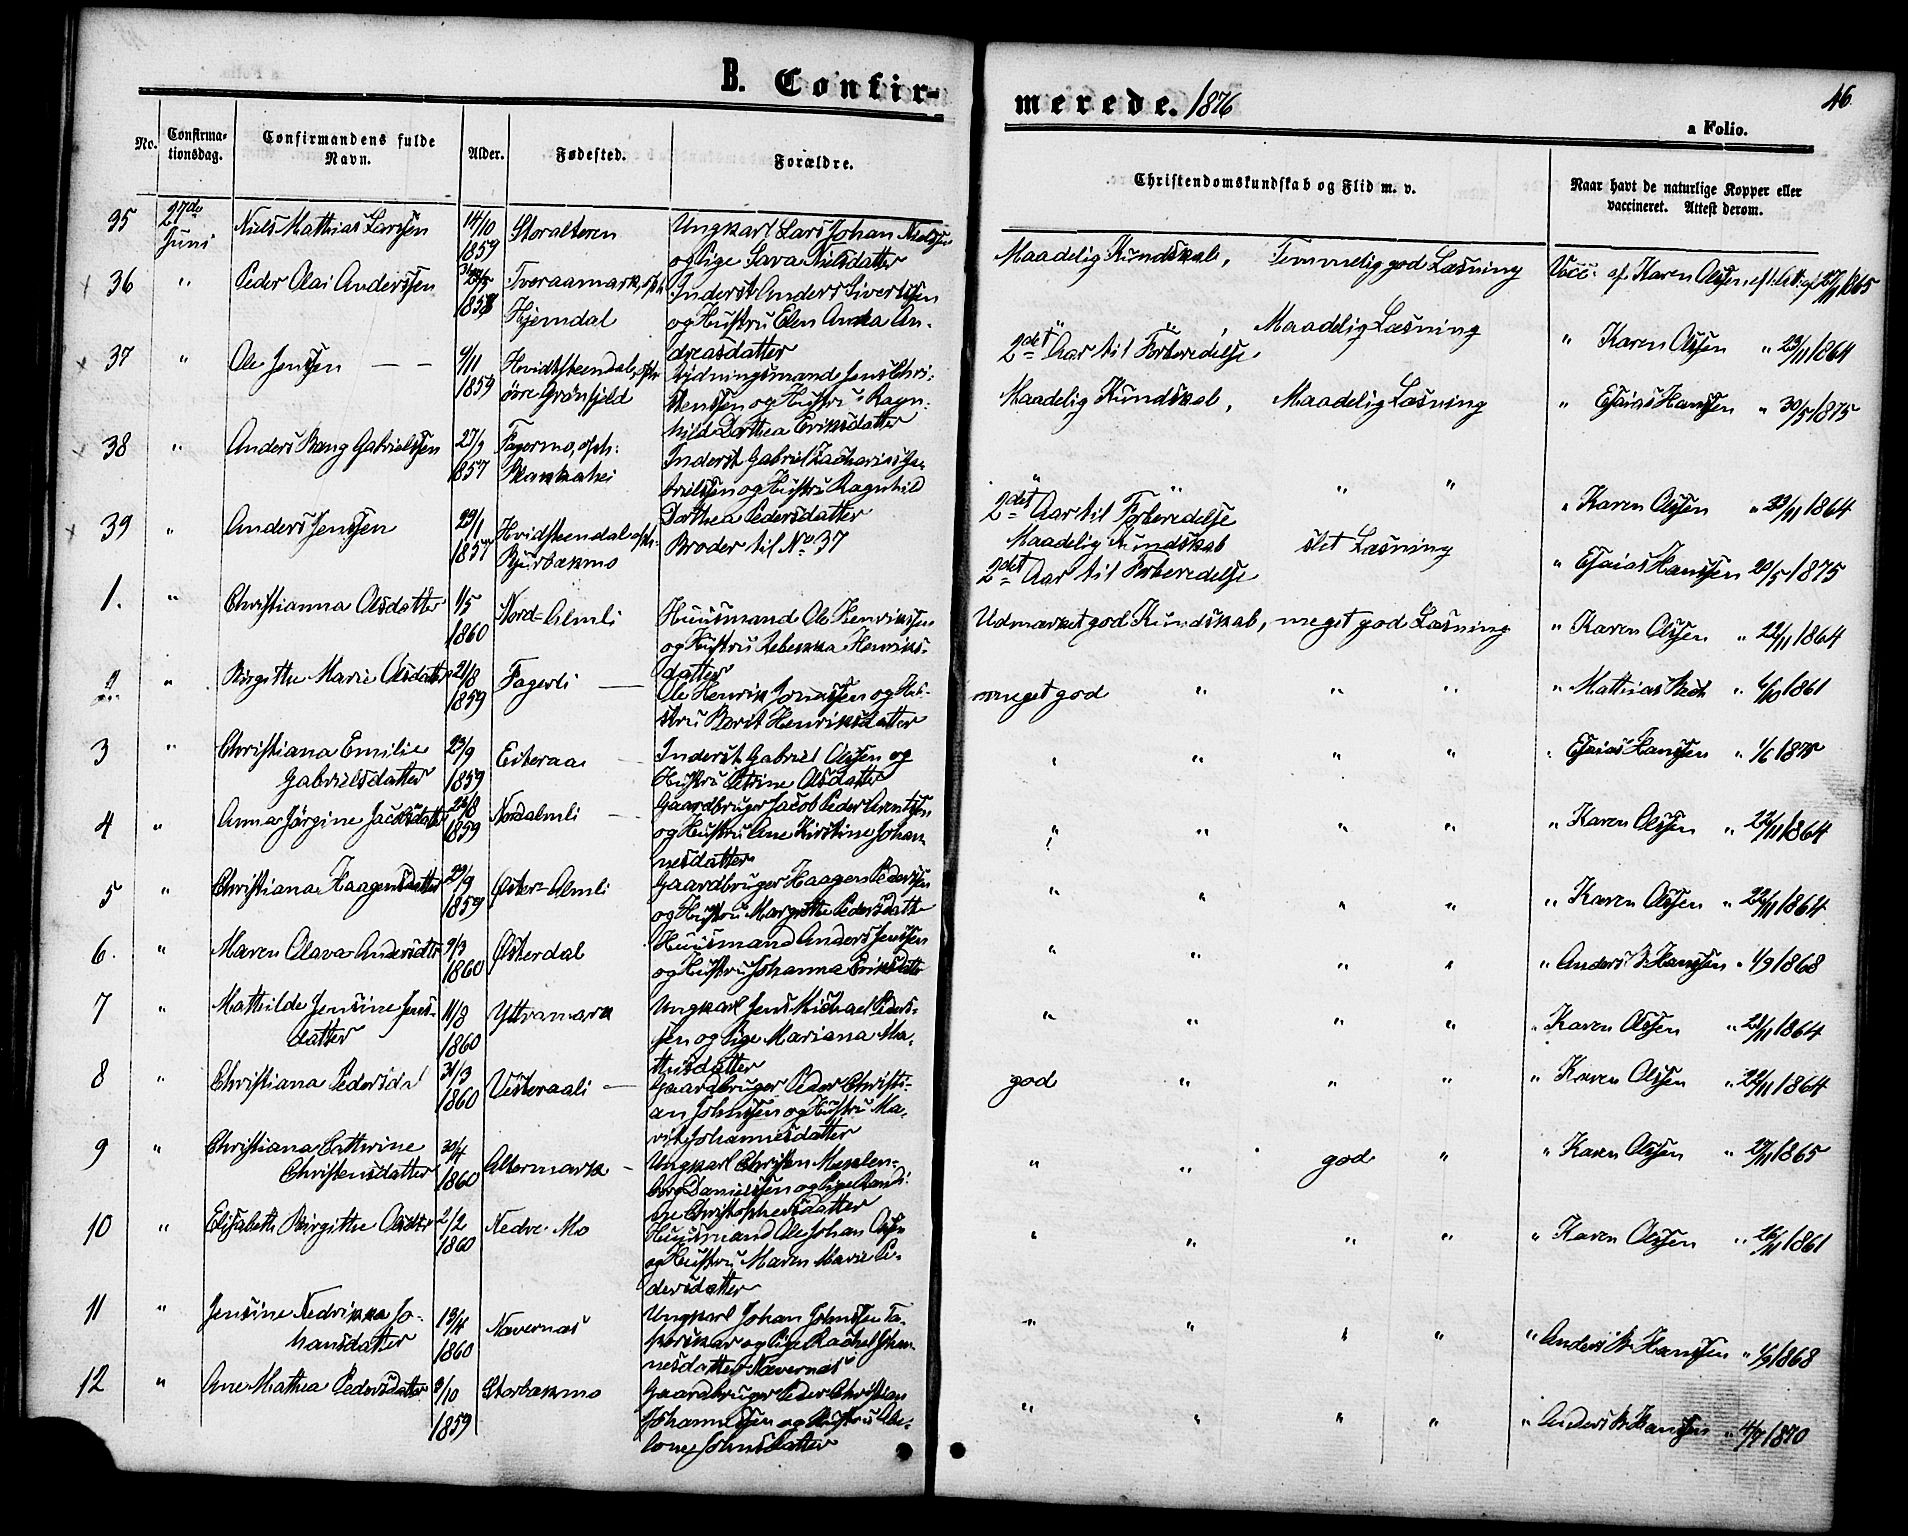 B. Confir-
merede. 1876
46
a Folio.
No.
Confirma-
tionsdag.
Confirmandens fulde
Navn.
Alder.
Fødested.
Forældre.
Christendomskundskab og Flid m. v.
Naar havt de naturlige Kopper eller
vaccineret. Attest derom.
35 27de Juni Niels Mathias Larsen 14/10 1859 Storalteren
Ungkarl Lars Johan Nielsen
og Pige Sara Nielsdatter
Maadelig Kundskab, Temmelig god Læsning
Vacc. af Karen Olsen
36 " Peder Olai Anderssen Tveraamark, Hjemdal
Inderst Anders Sivertsen
og Hustru Elen Anna An-
dreasdatter
" " , Maadelig Læsning
2det Aar til Forberedelse.
" Karen Olssen " 23/11 1864
37 " Ole Jenssen 1859 Hvidsteendal, øvre Grønfjeld
Rydningsmand Jens Chri-
stenssen og Hustru Ragn-
hild Dorthea Eriksdatter
Maadelig Kundskab, Maadelig Læsning
" Esaias Hanssen " 30/5 1875
38 " Anders Bang Gabrielssen 27/9 1857 Fagermo,
Inderst Gabriel Zacharias Ga-
brielssen og Hustru Ragnhild
Dorthea Pedersdatter
" " " "
2det Aar til Forberedelse
" Karen Olssen " 23/11 1864
39 " Anders Jenssen 29/1 1857 Hvidsteendal Bjurbækmo
Broder til No 37
Maadelig Kundskab slet Læsning
2det Aar til Forberedelse
" Esaias Hanssen 20/5 1875
1. " Christianna Olsdatter 1/5 1860 Nord-Almli
Huusmand Ole Henrikssen
og Hustru Rebekka Henriks-
datter
Udmærket god Kundskab, meget god Læsning
" Karen Olssen " 22/11 1864
2. " Birgithe Marie Olsdatter 21/8 1859 Fagerli
Ole Henrik Jonassen og Hu-
stru Berit Henriksdatter
meget god " " "
" Mathias " 1861
3 " Christiana Emilie
Gabrielsdatter 23/9 1859 Eiteraa
Inderst Gabriel Olssen og
Hustru Petrine Olsdatter
" " " "
" Esaias Hanssen " 1/6 1875
4 " Anna Jørgine Jacobsdatter 26/8 1859 Nordalmli
Gaardbruger Jacob Peder Arentssen
og Hustru Ane Kirstine Johan-
nesdatter
" " " "
" Karen Olssen " 22/11 1864
5 " Christiana Haagensdatter 29/9 1859 Øster-Almli
Gaardbruger Haagen Pederssen
og Hustru Margrethe Pedersdatter
" " " "
" Karen Olssen " 22/11 1864
6. " Maren Olava Andersdtr 9/3 1860 Østerdal
Huusmand Anders Jenssen
og Hustru Johanna Eriksdatter
" " " "
" Anders B. Hanssen " 1/9 1868
7 " Mathilde Jensine Jens-
datter 11/8 1860 Yttramark
Ungkarl Jens Michael Peders-
sen og Pige Mariana Ma-
thisdatter
" " " "
" Karen Olssen " 21/11 1864
8 " Christiana Pedersdat 31/3 1860 Vesteraali
Gaardbruger Peder Christi-
an Johnssen og Hustru Ma-
rit Johannesdatter
god " " "
" Karen Olssen " 22/11 1864
9 " Christiana Cathrine
Christensdatter 30/4 1860 Altermark
Ungkarl Christen Meklen-
borg Danielssen og Pige
Christophersdatter
" " god "
" Karen Olssen " 27/11 1865
10 " Elisabeth Birgithe Olsdtr 2/2 1860 Nedre Mo
Huusmand Ole Johan Olssen
og Hustru Maren Marie Pe-
dersdatter
" " " "
" Karen Olssen " 26/11 1861
11 " Jensine Nedrikka Jo-
hansdatter 13/4 1860 Nævernæs
Ungkarl Johan Johnssen
og Pige Rachel Johan-
nesdatter Nævernæs
" " " "
" Anders B. Hanssen " 1/9 1868
12 " Ane Mathea Pedersdatter 9/10 1859 Storbækmo
Gaardbruger Peder Christian
Johannessen og Hustru Abe-
lone Johnsdatter
" " " "
" Anders B. Hanssen " 1870